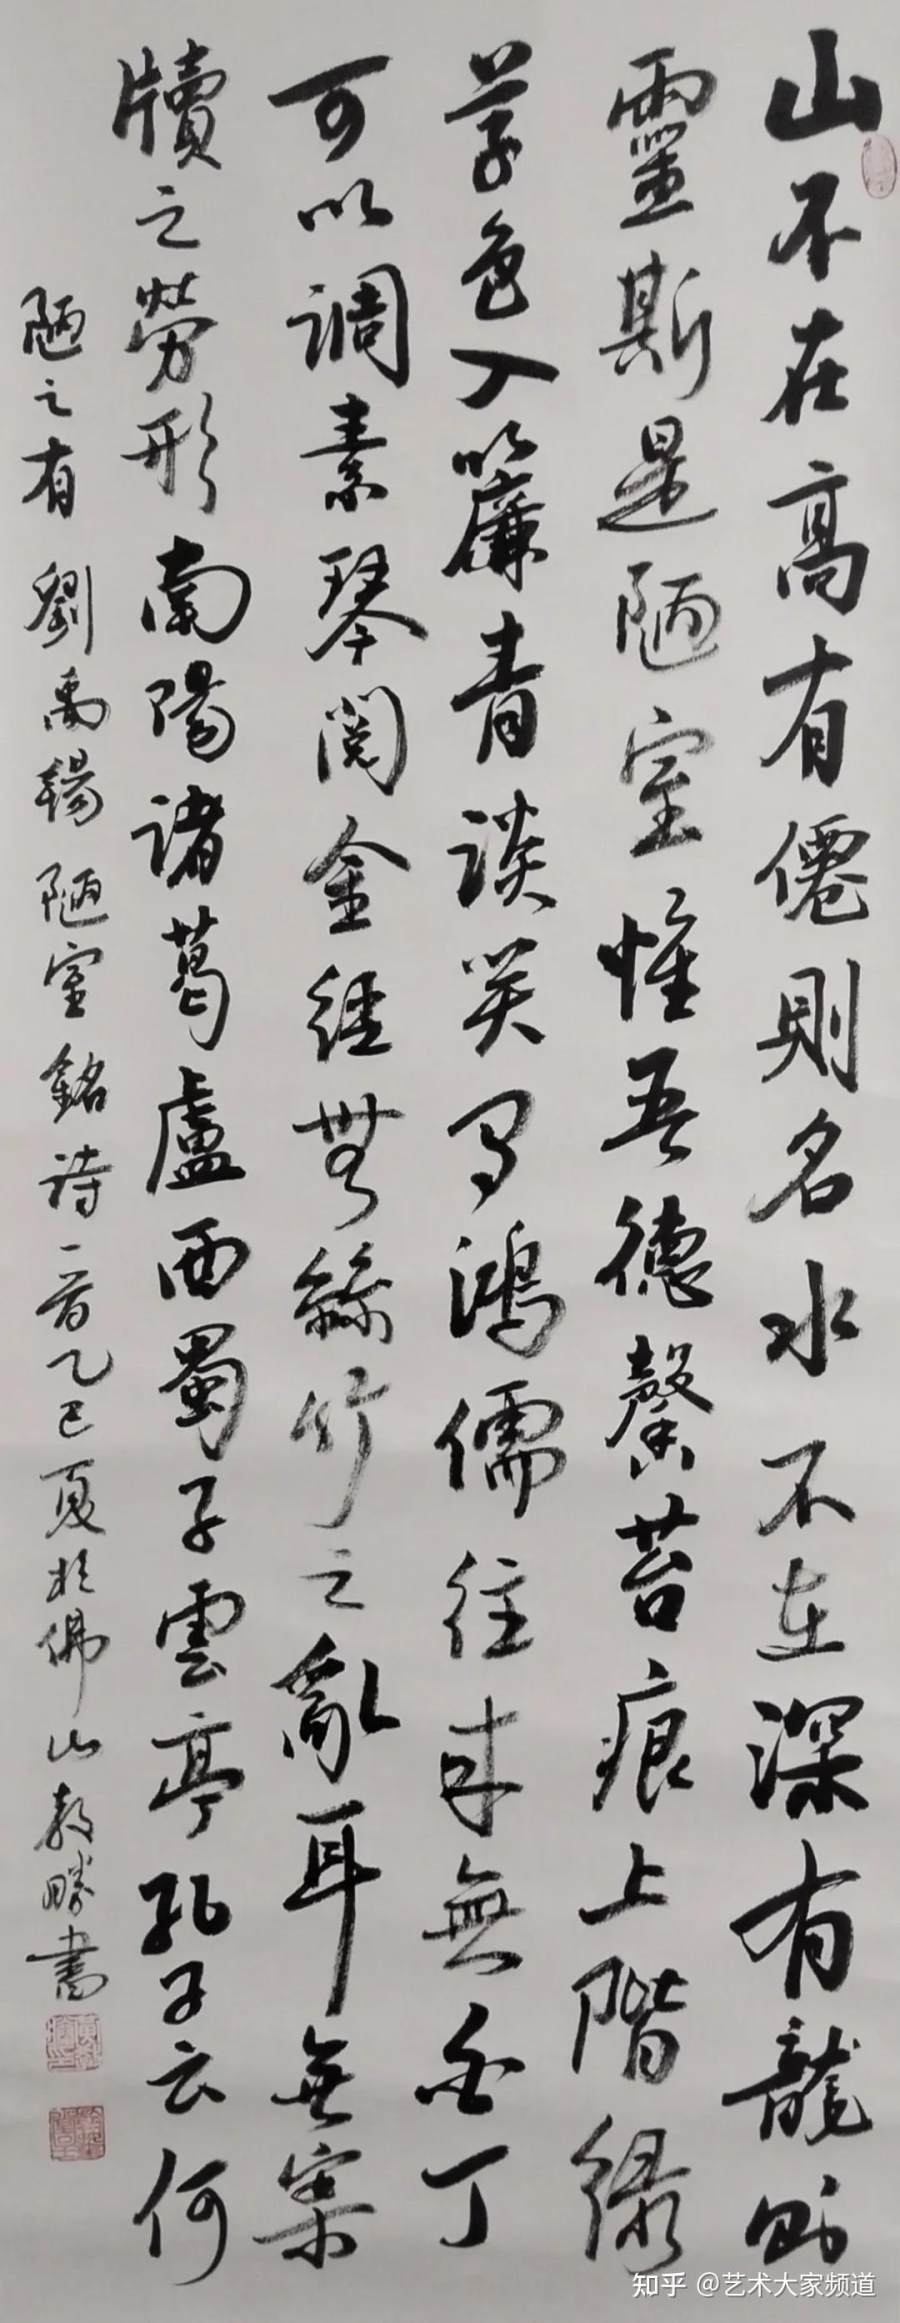 山不在高有僊則名水不在深有龍則
靈斯是陋室惟吾德馨苔痕上階緑
草色入簾青談笑有鴻儒往来無白丁
可以調素琴閱金經無絲竹之亂耳無案
牘之勞形南陽諸葛盧西蜀子雲亭孔子云何
陋之有 劉禹錫 陋室銘詩一首乙巳夏於佛山勝書
知乎 @艺术大家频道